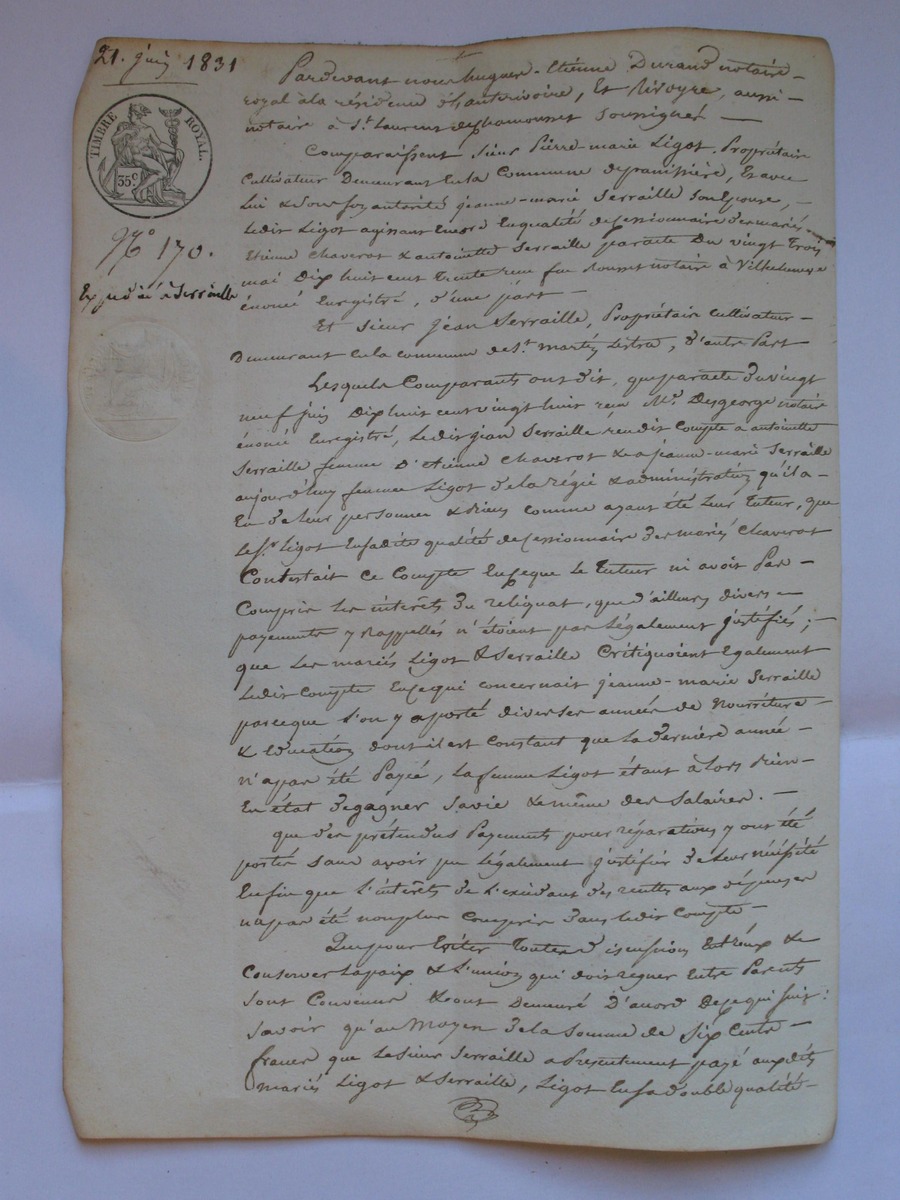 21. juin 1831
TIMBRE ROYAL.
35 c.
N° 170.
Expédié à Serraille
Pardevant nous hugues-Etienne Durand notaire
royal à la résidence , Et Rivoyre, aussi
notaire à St. Laurent de chamousset soussignés
Comparaissent sieur Pierre-marie Ligot, Propriétaire
Cultivateur Demeurant En la Commune de panissière, Et avec
Lui & sous son autorité jeanne-marie Serraille son Epouse,
Ledit Ligot agissant Encore En qualité de Cessionnaire des mariés
Etienne Chaverot & antoinette Serraille par acte Du vingt Trois
mai Dix huit cent Trente reçu notaire à Villechenève
énoncé Enregistré, d'une part
Et Sieur jean Serraille, Propriétaire Cultivateur
Demeurant En la commune de St. martin Lestra, d'autre Part
Lesquels Comparants ont dit, que par acte du vingt
neuf juin Dix huit cent vingt huit reçu Me. Desgeorge notaire
énoncé Enregistré, Ledit jean Serraille rendit Compte a antoinette
Serraille femme D'etienne Chaverot & a jeanne-marie Serraille
aujourd'huy femme Ligot de la régie & administration qu'il a
Eu de leurs personnes & biens comme ayant été leur Tuteur, que
le Sr. Ligot En sa dite qualité de Cessionnaire des mariés Chaverot
Contestait Ce Compte En ce que Le Tuteur ni avoit Pas
Compris Les intérêts du reliquat, que d'ailleurs divers
payements y Rappellés n'étoient pas Légalement justifiés;
que Les mariés Ligot & Serraille Critiquoient Egalement
Ledit Compte En ce qui concernait jeanne-marie Serraille
parceque l'on y a porté diverses années de Nourriture
& Education dont il est Constant que la dernière année
n'a pas été Payée, La femme Ligot étant à Lors bien
En état de gagner sa vie & même des Salaires.
que des prétendus Payements pour réparations y ont été
portés sans avoir pu Légalement justifier de Leur nécéssité
Enfin que L'intérêts de L'exédant des rentes aux dépenses
n'a pas été non plus Compris dans ledit Compte
Que pour Eviter Toutes discussions Entr'eux &
Conserver La paix & L'union qui doit regner Entre Parents
sont Convenus & sont Demeuré D'accord De ce qui suit:
Savoir qu'au Moyen de la somme de Six Cents
francs que le sieur Serraille a Présentement payé auxdits
mariés Ligot & Serraille, Ligot En sa double qualité